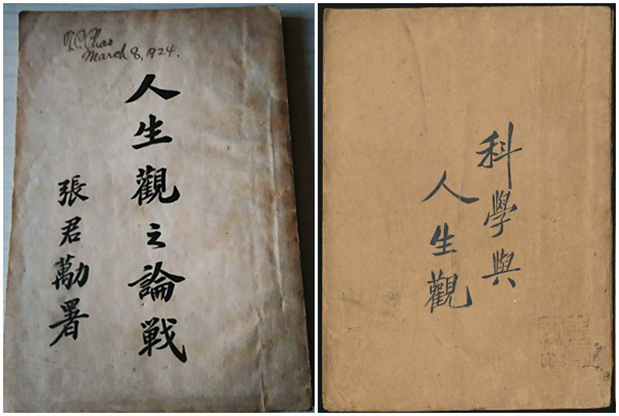 T.C. Chao
March 8, 1924.
人生觀之論戰
張君勱署
科學與
人生觀